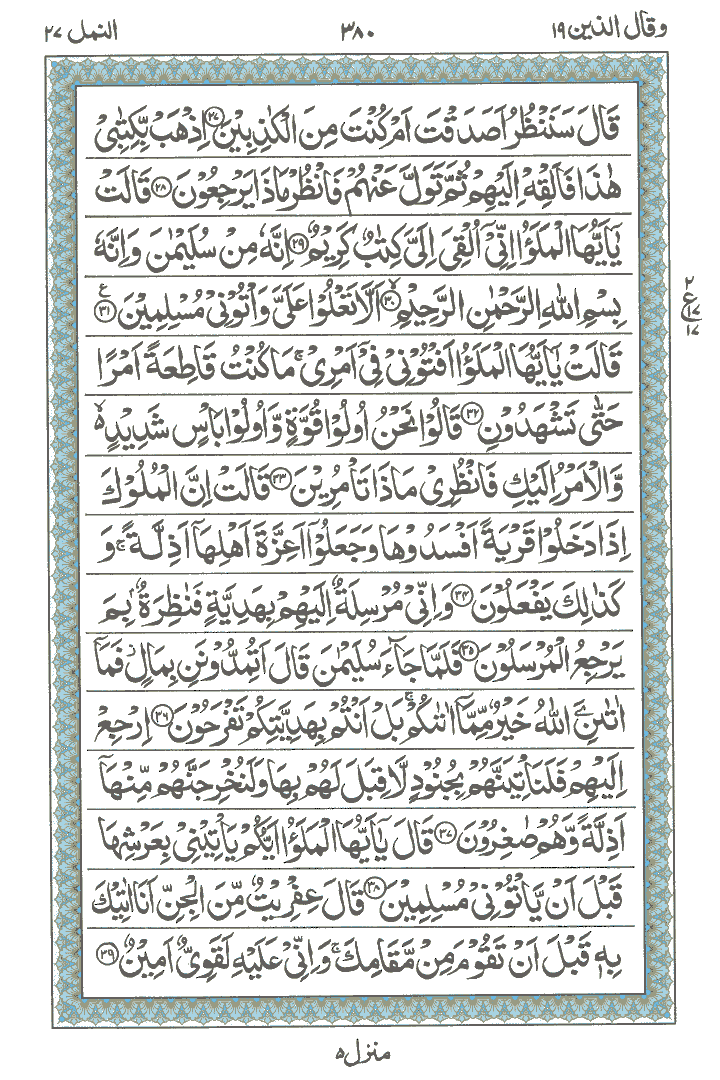 وقال الذين ١٩ ٣٨٠ النمل ٢٧
قَالَ سَنَنْظُرُ اَصَدَقْتَ اَمْ كُنْتَ مِنَ الْكٰذِبِيْنَ ﴿۲۷﴾ اِذْهَبْ بِّكِتٰبِيْ
هٰذَا فَاَلْقِهْ اِلَيْهِمْ ثُمَّ تَوَلَّ عَنْهُمْ فَانْظُرْ مَاذَا يَرْجِعُوْنَ ﴿۲۸﴾ قَالَتْ
يٰۤاَيُّهَا الْمَلَؤُا اِنِّيْۤ اُلْقِيَ اِلَيَّ كِتٰبٌ كَرِيْمٌ ﴿۲۹﴾ اِنَّهٗ مِنْ سُلَيْمٰنَ وَاِنَّهٗ
بِسْمِ اللّٰهِ الرَّحْمٰنِ الرَّحِيْمِ ﴿۳۰﴾ اَلَّا تَعْلُوْا عَلَيَّ وَاْتُوْنِيْ مُسْلِمِيْنَ ﴿۳۱﴾ ع
قَالَتْ يٰۤاَيُّهَا الْمَلَؤُا اَفْتُوْنِيْ فِيْۤ اَمْرِيْ ۚ مَا كُنْتُ قَاطِعَةً اَمْرًا
حَتّٰى تَشْهَدُوْنِ ﴿۳۲﴾ قَالُوْا نَحْنُ اُولُوْا قُوَّةٍ وَّاُولُوْا بَاْسٍ شَدِيْدٍ ۙ
وَّالْاَمْرُ اِلَيْكِ فَانْظُرِيْ مَاذَا تَاْمُرِيْنَ ﴿۳۳﴾ قَالَتْ اِنَّ الْمُلُوْكَ
اِذَا دَخَلُوْا قَرْيَةً اَفْسَدُوْهَا وَجَعَلُوْۤا اَعِزَّةَ اَهْلِهَاۤ اَذِلَّةً ۚ وَ
كَذٰلِكَ يَفْعَلُوْنَ ﴿۳۴﴾ وَاِنِّيْ مُرْسِلَةٌ اِلَيْهِمْ بِهَدِيَّةٍ فَنٰظِرَةٌۢ بِمَ
يَرْجِعُ الْمُرْسَلُوْنَ ﴿۳۵﴾ فَلَمَّا جَآءَ سُلَيْمٰنَ قَالَ اَتُمِدُّوْنَنِ بِمَالٍ ؗ فَمَاۤ
اٰتٰىنِۦَ اللّٰهُ خَيْرٌ مِّمَّاۤ اٰتٰىكُمْ ۚ بَلْ اَنْتُمْ بِهَدِيَّتِكُمْ تَفْرَحُوْنَ ﴿۳۶﴾ اِرْجِعْ
اِلَيْهِمْ فَلَنَاْتِيَنَّهُمْ بِجُنُوْدٍ لَّا قِبَلَ لَهُمْ بِهَا وَلَنُخْرِجَنَّهُمْ مِّنْهَاۤ
اَذِلَّةً وَّهُمْ صٰغِرُوْنَ ﴿۳۷﴾ قَالَ يٰۤاَيُّهَا الْمَلَؤُا اَيُّكُمْ يَاْتِيْنِيْ بِعَرْشِهَا
قَبْلَ اَنْ يَّاْتُوْنِيْ مُسْلِمِيْنَ ﴿۳۸﴾ قَالَ عِفْرِيْتٌ مِّنَ الْجِنِّ اَنَا اٰتِيْكَ
بِهٖ قَبْلَ اَنْ تَقُوْمَ مِنْ مَّقَامِكَ ۚ وَاِنِّيْ عَلَيْهِ لَقَوِيٌّ اَمِيْنٌ ﴿۳۹﴾
٢
ع
١٧
١٧
منزل ٥